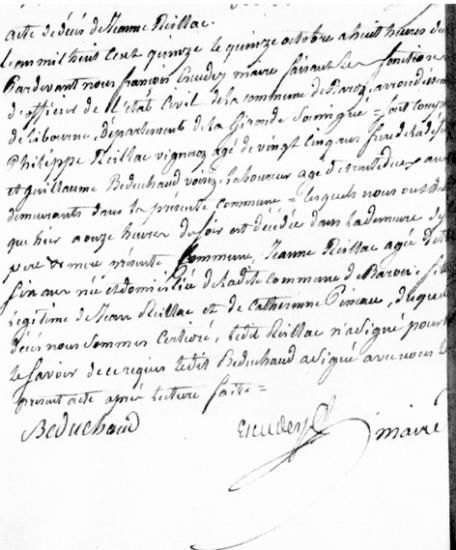 acte de décès de Jeanne Reillac.
L'an mil huit cent quinze le quinze octobre a huit heures du
Pardevant nous françois Escudey maire faisant les fonctions
d'officier de l'état Civil de la commune de arrondissem
de Libourne, Département de la Gironde Soussigné = sont comp
Philippe Reillac vigneron agé de vingt Cinq ans frere de la déf
et guillaume Beduchaud voisin, laboureur agé de trente deux ans
demeurants dans la présente commune = lesquels nous ont
qui hier a onze heures du soir est décédée dans la demeure de
pere & mere présente Commune, Jeanne Reillac agée d
ans née et domiciliée de ladite commune de
Légitime de Jean Reillac et de Catherine Pineau, duquel
décès nous Sommes Certioré, ledit Reillac n'a signé pour
le Savoir de ce requis ledit Beduchaud a signé avec nous le
présent acte après Lecture faite =
Beduchaud Escudey maire